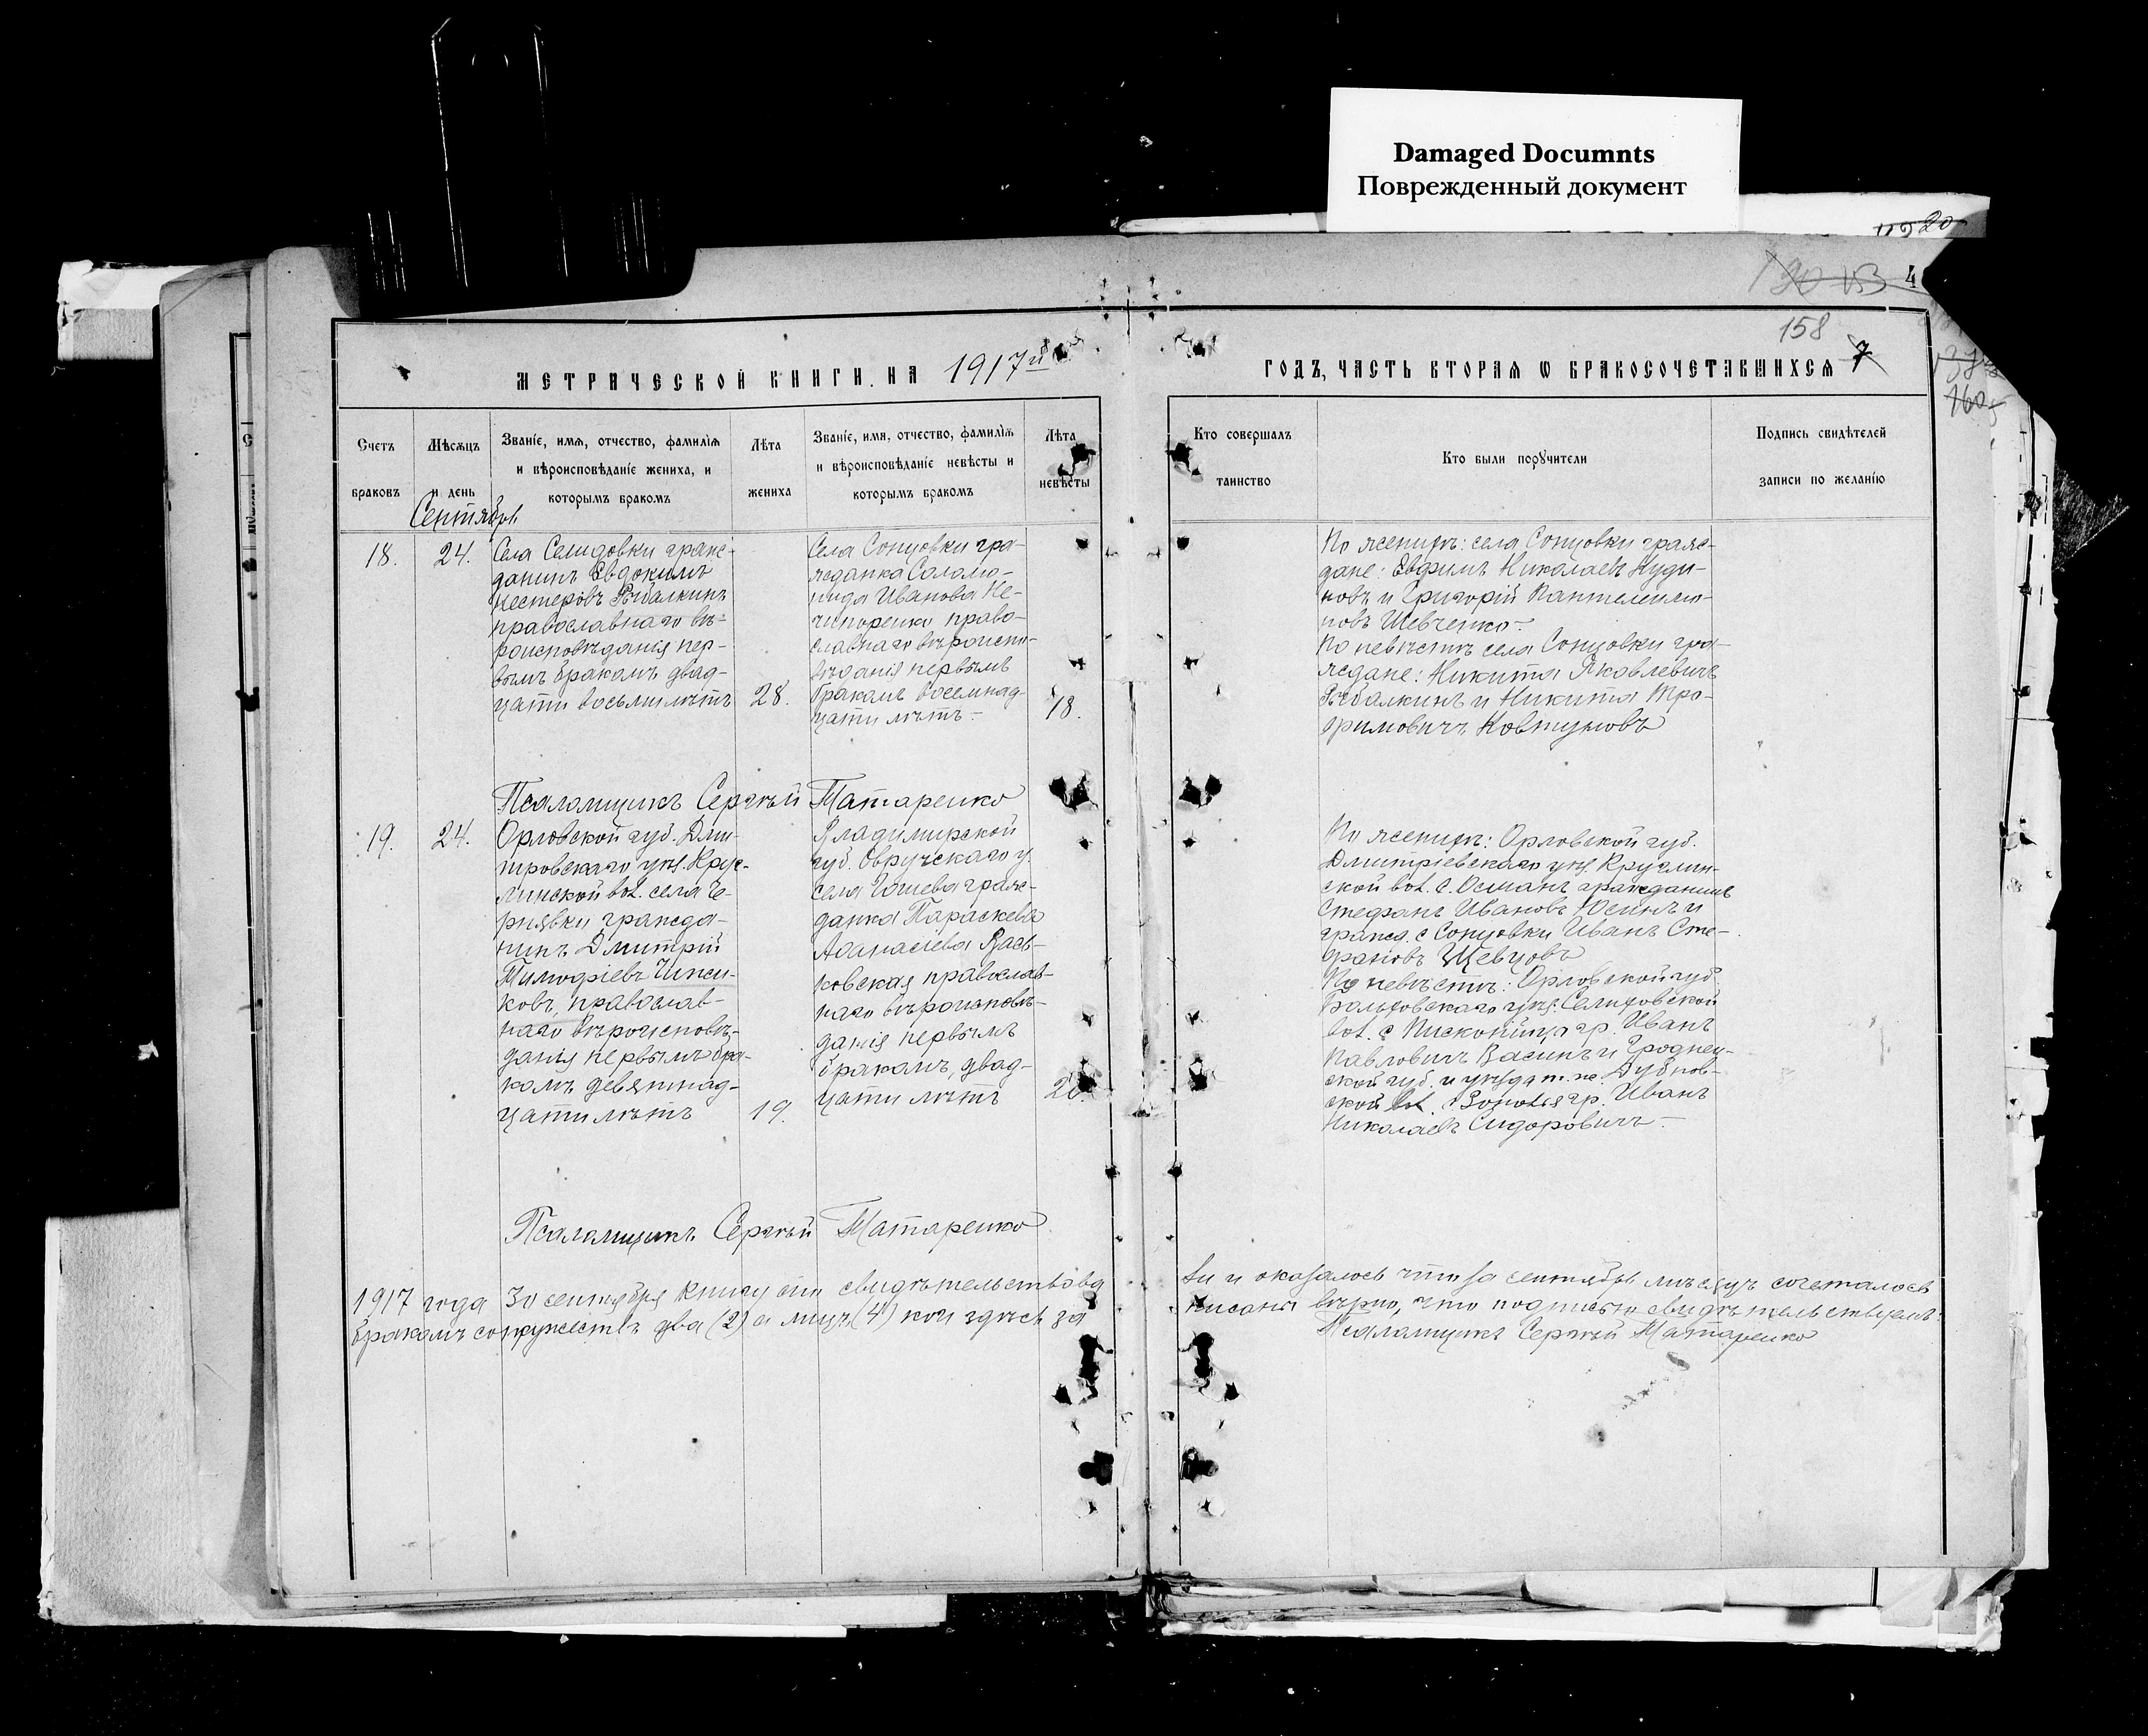 Damaged Documnts
Поврежденный документ
158
4
МЕТРИЧЕСКОЙ КНИГИ НА 1917й
ГОДЪ, ЧАСТЬ ВТОРАЯ Ѡ БРАКОСОЧЕТАВШИХСЯ 7
Счетъ
браковъ
Мѣсяцъ
и день
Званіе, имя, отчество, фамилія
и вѣроисповѣданіе жениха, и
которымъ бракомъ
Лѣта
жениха
Званіе, имя, отчество, фамилія
и вѣроисповѣданіе невѣсты и
которымъ бракомъ
Лѣта
невѣсты
Кто совершалъ
таинство
Кто были поручители
Подпись свидѣтелей
записи по желанію
Сентябрь
18.
24.
Села Селидовки граж-
данинъ Евдокимъ
Нестеровъ Рыбалкинъ
православнаго вѣ-
роисповѣданія пер-
вымъ бракомъ двад-
цати восьми лѣтъ
28.
Села Сонцовки гра-
жданка Соломо-
нида Иванова Не-
чипоренко право-
славнаго вѣроиспо-
вѣданія первымъ
бракомъ восемнад-
цати лѣтъ.-
18.
По женихѣ: села Сонцовки граж-
дане: Евфимъ Николаевъ Нуди-
новъ и Григорій Пантелеимо-
новъ Шевченко.-
По невѣстѣ села Сонцовки гра-
ждане: Никита Яковлевичъ
Рыбалкинъ и Никита Тро-
фимовичъ Ковтуновъ
Псаломщикъ Сергѣй Татаренко
19.
24.
Орловской губ. Дми-
тровскаго уѣз. Круг-
линской вол. села Че-
рнявки гражда-
нинъ Дмитрій
Тимофіевъ Чижи-
ковъ, православ-
наго вѣроисповѣ-
данія первымъ бра-
комъ девятнад-
цати лѣтъ
19.
Владимирской
губ. Овручскаго у.
села Гошева граж-
данка Параскева
Аѳанасіева Вась-
ковская православ-
наго вѣроисповѣ-
данія первымъ
бракомъ, двад-
цати лѣтъ
20.
По женихѣ: Орловской губ.
Дмитріевскаго уѣз. Круглин-
ской вол. с. Османъ гражданинъ
Стефанъ Ивановъ Юсинъ и
гражд. с Сонцовки Иванъ Сте-
фановъ Шевцовъ
По невѣстѣ: Орловской губ.
Болховскаго уѣз. Селиховской
вол. с гр. Иванъ
Павловичъ Васинъ и Гроднен-
ской губ. и уѣзда т. же. Дубнов-
ской вол. с гр. Иванъ
Николаевъ Сидоровичъ.-
Псаломщикъ Сергѣй Татаренко
1917 года 30 сентября книгу сію свидѣтельствова
ли и оказалось что за сентябрь мѣсяцъ сочеталось
бракомъ супружествъ два (2) а лицъ (4) кои здѣсь за
писаны вѣрно, что подписью свидѣтельствуемъ:
Псаломщикъ Сергѣй Татаренко